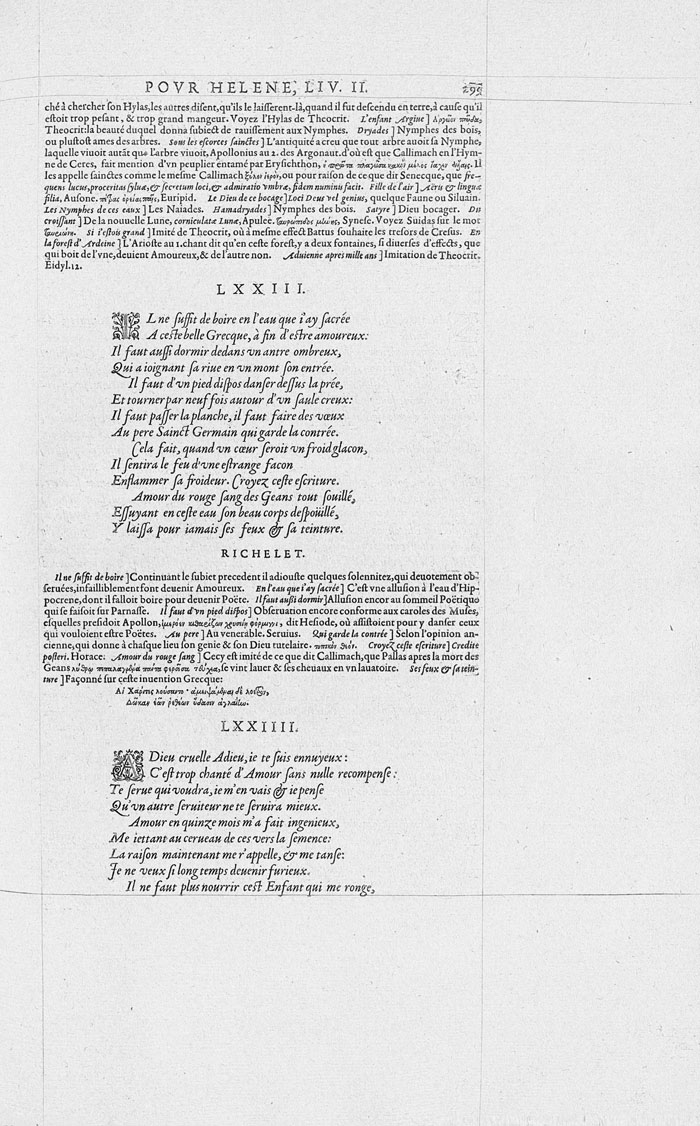 POVR HELENE, LIV. II.
ché à chercher son Hylas, les autres disent, qu'ils le laisserent-là, quand il fut descendu en terre, à cause qu'il
estoit trop pesant, & trop grand mangeur. Voyez l'Hylas de Theocrit. L'enfant Argine]
Theocrit: la beauté duquel donna subiect de rauissement aux Nymphes. Dryades] Nymphes des bois,
ou plustost ames des arbres. Sous les escorces sainctes] L'antiquité a creu que tout arbre auoit sa Nymphe,
laquelle viuoit autāt que l'arbre viuoit, Apollonius au 2. des Argonaut. d'où est que Callimach en l'Hym-
ne de Ceres, fait mention d'vn peuplier entamé par Erysichthon,
les appelle sainctes comme le mesme Callimach ou pour raison de ce que dit Senecque, que fre-
quens lucus, proceritas syluæ, & secretum loci, & admiratio vmbræ, fidem numinis facit. Fille de l'air] Aëris & linguæ
filia, Ausone. Euripid. Le Dieu de ce bocage] Loci Deus vel genius, quelque Faune ou Siluain.
Les Nymphes de ces eaux] Les Naiades. Hamadryades] Nymphes des bois. Satyre] Dieu bocager. Du
croissant] De la nouuelle Lune, corniculatæ Lunæ, Apulee. Synese. Voyez Suidas sur le mot
Si i'estois grand] Imité de Theocrit, où à mesme effect Battus souhaite les tresors de Cresus. En
la forest d'Ardeine] L'Arioste au 1. chant dit qu'en ceste forest, y a deux fontaines, si diuerses d'effects, que
qui boit de l'vne, deuient Amoureux, & de l'autre non. Aduienne apres mille ans] Imitation de Theocrit.
Eidyl. 12.
LXXIII.
IL ne suffit de boire en l'eau que i'ay sacrée
A ceste belle Grecque, à fin d'estre amoureux:
Il faut aussi dormir dedans vn antre ombreux,
Qui a ioignant sa riue en vn mont son entrée.
Il faut d'vn pied dispos danser dessus la prée,
Et tourner par neuf fois autour d'vn saule creux:
Il faut passer la planche, il faut faire des vœux
Au pere Sainct Germain qui garde la contrée.
Cela fait, quand vn cœur seroit vn froid glacon,
Il sentira le feu d'vne estrange facon
Enflammer sa froideur. Croyez ceste escriture.
Amour du rouge sang des Geans tout souillé,
Essuyant en ceste eau son beau corps despoüillé,
Y laissa pour iamais ses feux & sa teinture.
RICHELET.
Il ne suffit de boire] Continuant le subiet precedent il adiouste quelques solennitez, qui deuotement ob-
seruées, infailliblement font deuenir Amoureux. En l'eau que i'ay sacrée] C'est vne allusion à l'eau d'Hip-
pocrene, dont il falloit boire pour deuenir Poëte. Il faut aussi dormir] Allusion encor au sommeil Poëtique
qui se faisoit sur Parnasse. Il faut d'vn pied dispos] Obseruation encore conforme aux caroles des Muses,
esquelles presidoit Apollon, dit Hesiode, où assistoient pour y danser ceux
qui vouloient estre Poëtes. Au pere] Au venerable. Seruius. Qui garde la contrée] Selon l'opinion an-
cienne, qui donne à chasque lieu son genie & son Dieu tutelaire. Croyez ceste escriture] Credite
posteri. Horace. Amour du rouge sang] Cecy est imité de ce que dit Callimach, que Pallas apres la mort des
Geans se vint lauer & ses cheuaux en vn lauatoire. Ses feux & sa tein-
ture] Façonné sur ceste inuention Grecque:
LXXIIII.
ADieu cruelle Adieu, ie te suis ennuyeux:
C'est trop chanté d'Amour sans nulle recompense:
Te serue qui voudra, ie m'en vais & ie pense
Qu'vn autre seruiteur ne te seruira mieux.
Amour en quinze mois m'a fait ingenieux,
Me iettant au cerueau de ces vers la semence:
La raison maintenant me r'appelle, & me tanse:
Je ne veux si long temps deuenir furieux.
Il ne faut plus nourrir cest Enfant qui me ronge,